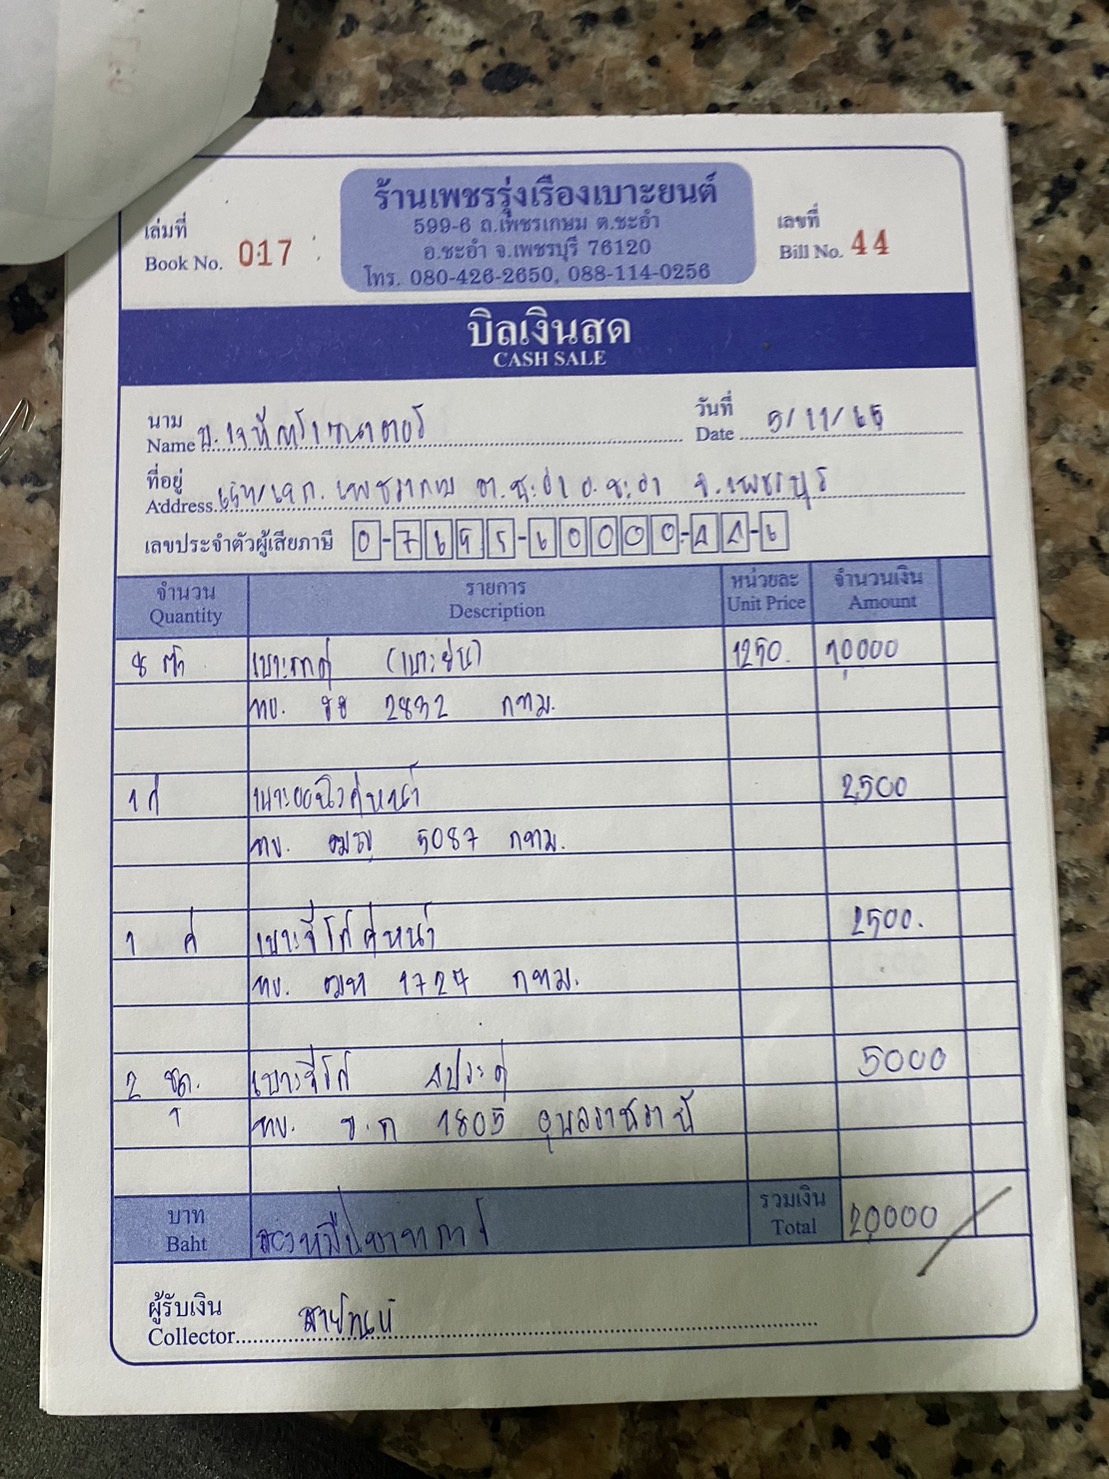 ร้านเพชรรุ่งเรืองเบาะยนต์
599-6 ถ.เพชรเกษม ต.ชะอำ
อ.ชะอำ จ.เพชรบุรี 76120
โทร. 080-426-2650, 088-114-0256
เล่มที่
Book No. 017
เลขที่
Bill No. 44
บิลเงินสด
CASH SALE
นาม
Name
วันที่
Date 5/11/65
ที่อยู่
Address เพชรเกษม ต.ชะอำ อ.ชะอำ จ.เพชรบุรี
เลขประจำตัวผู้เสียภาษี
จำนวน รายการ หน่วยละ จำนวนเงิน
Quantity Description Unit Price Amount
8 (เบาะยืน) 1250. 10000
ทบ. 2832 กทม.
1 คู่ คู่หน้า 2500
ทบ. 5087 กทม.
1 คู่ คู่หน้า 2500.
ทบ. 1727 กทม.
2 4ประตู 5000
ทบ. 1805 อุบลราชธานี
บาท สองหมื่นบาทถ้วน รวมเงิน 20000
Baht Total
ผู้รับเงิน
Collector